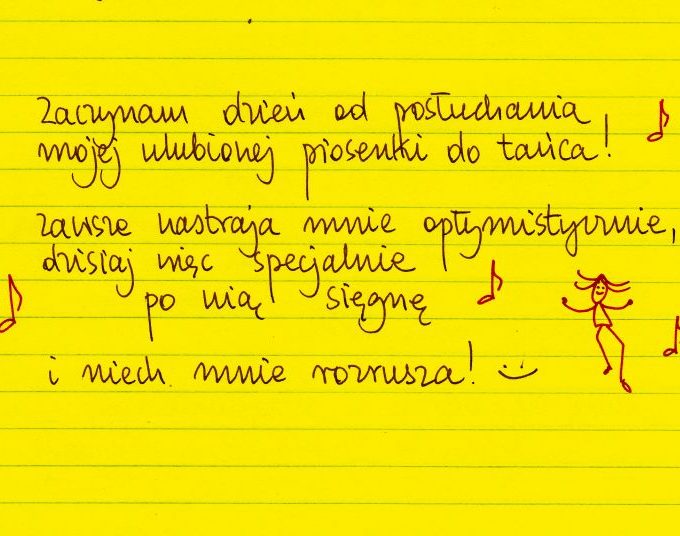 Zaczynam dzień od posłuchania
mojej ulubionej piosenki do tańca!
zawsze nastraja mnie optymistycznie,
dzisiaj więc specjalnie
po nią sięgnę
i niech mnie rozrusza! :)